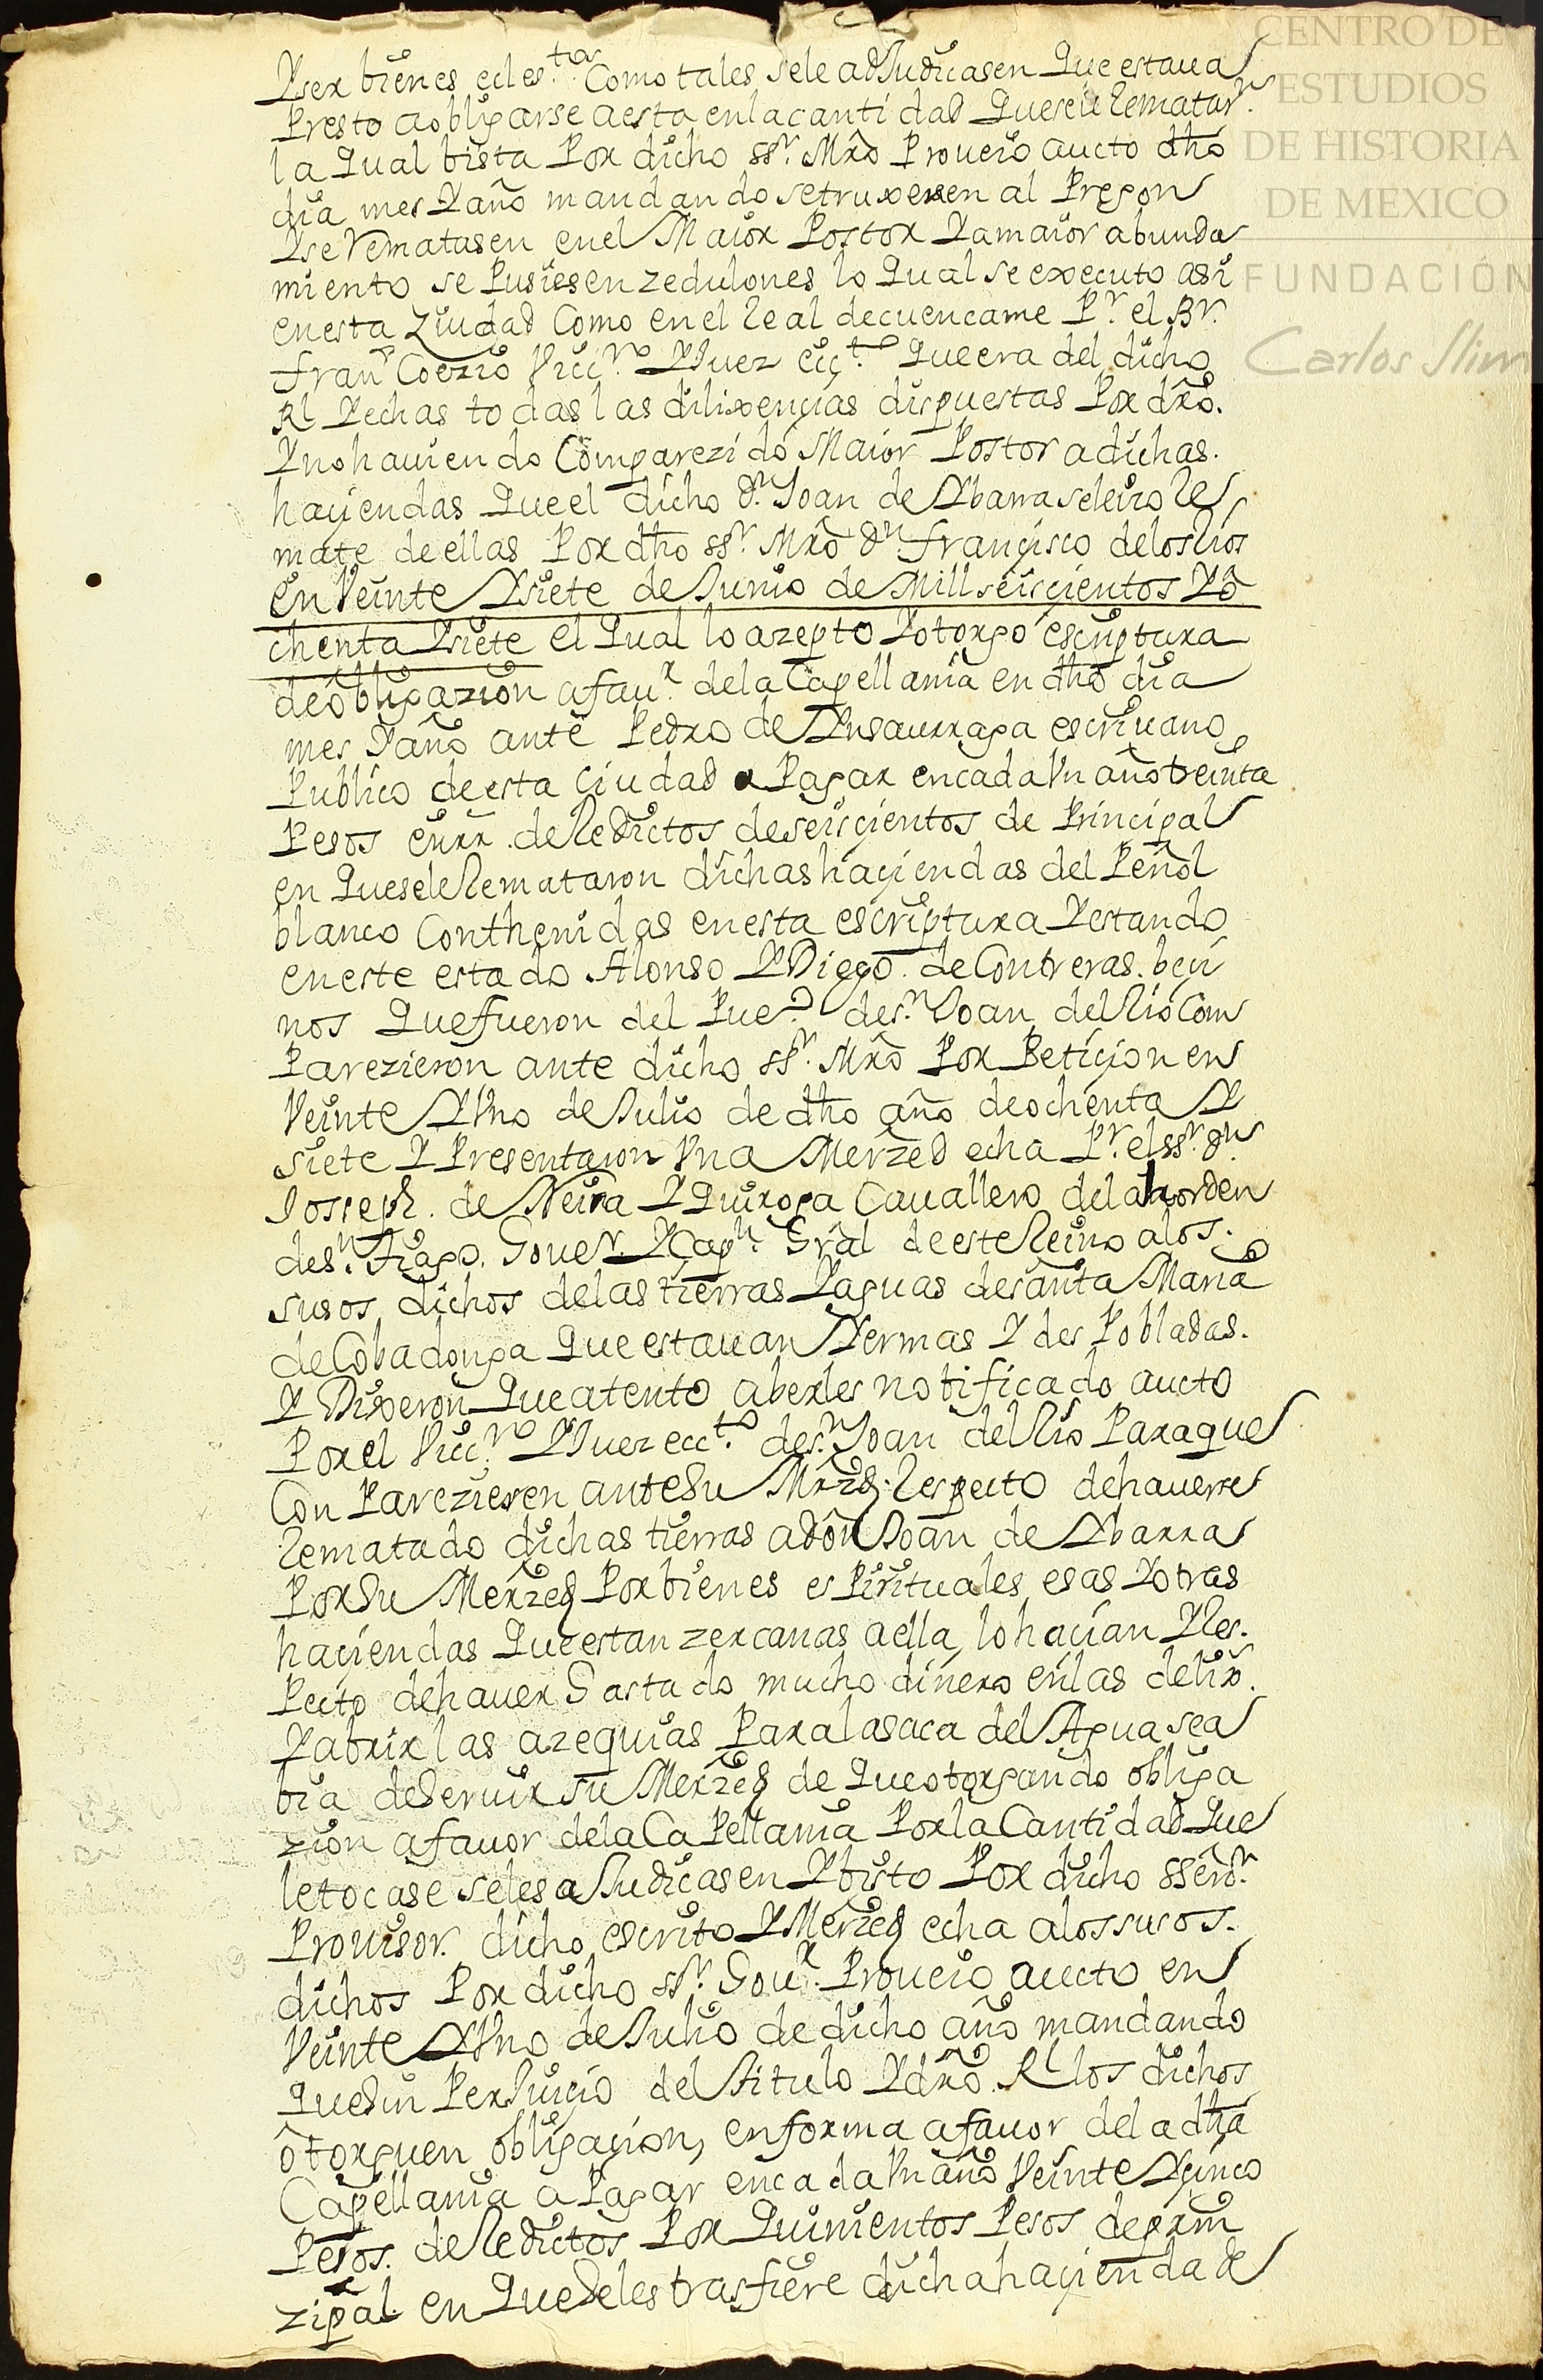 Yser bienes ecles.tos Como tales sele adJudicasen Que estaua
Presto a obligarse a esta en la cantidad Que se le Rematarn.
la Qual bista Por dicho ssr. Mro Proueio aucto dho
dia mes Y año mandando se truxesen al Pregon
Yse Rematasen en el Maior Postor Y a maior abunda
miento se Pusiesen zedulones lo Qual se executo asi
en esta Ziudad Como en el Real de cuencame Pr. el Br.
franco Coezio Vicro. YJuez ecc.to Que era del dicho
Rl Yechas todas las dilixencias dispuestas Por dro.
Y no hauiendo Comparezido Maior Postor a dichas.
haciendas Que el dicho Dn. Joan de Ybarra se leizo Re
mate de ellas Por dho ssr. Mro Dn francisco de los Rios
en Veinte Ysiete de Junio de Mill seiscientos Y o
chenta Ysiete el Qual lo azepto Y otorgo escriptura
de obligazion a faur. de la Capellania en dho dia
mes Y año ante Pedro de Ynsaurraga escriuano
Publico de esta Ciudad a Pagar en cada Vn año treinta
Pesos en rr. de Redictos de seiscientos de Principal
en Que se le Remataron dichas haciendas del Peñol
blanco Conthenidas en esta escriptura Y estando
en este estado Alonso Y Diego de Contreras. beci
nos Que fueron del Pueo. de sn. Joan del Rio Com
Parezieron ante dicho ssr. Mro Por Peticion en
Veinte Y Vno de Julio de dho año de ochenta Y
siete Y Presentaron Vna Merzed echa Pr. el ssr. Dn.
Joseph. de Neira Y Quiroga Cauallero de la horden
de sn. tiago. Gouer. Y Capn. Gral de este Reino a los.
susos dichos de las tierras Y aguas de santa Maria
de Cobadonga Que estauan Yermas Y des Pobladas.
Y Dixeron Que atento a berles notificado aucto
Por el Vicro. YJuez ecc.to de sn. Joan del Rio Para que
Con Parezieren ante Su Mrzd. Respecto de hauerse
Rematado dichas tierras a don Joan de Ybarra
Por Su Merzed Por bienes es Pirituales esas Y otras
haciendas Que estan zercanas a ella lo hacian Y Res.
Pecto de hauer Gastado mucho dinero en las delix.
Y abrir las azequias Para la saca del Agua sea
bia de Seruir su Merzed de Que otorgando obliga
zion a fauor de la Ca Pellania Por la Cantidad Que
le tocase se les a Judicasen Y bisto Por dicho sseñor.
Prouisor. dicho escrito Y Merzed echa a los susos.
dichos Por dicho ssr. Gour. Proueio aucto en
Veinte Y Vno de Julio de dicho año mandando
Que Sin PerJuicio del titulo Y dro. Rl los dichos
otorguen obligacion, en forma a fauor de la dha
Capellania a Pagar en cada Vn año Veinte Ycinco
Pesos. de Redictos Por Quinientos Pesos de prin
zipal en Que Se les trasfiere dicha hacienda de